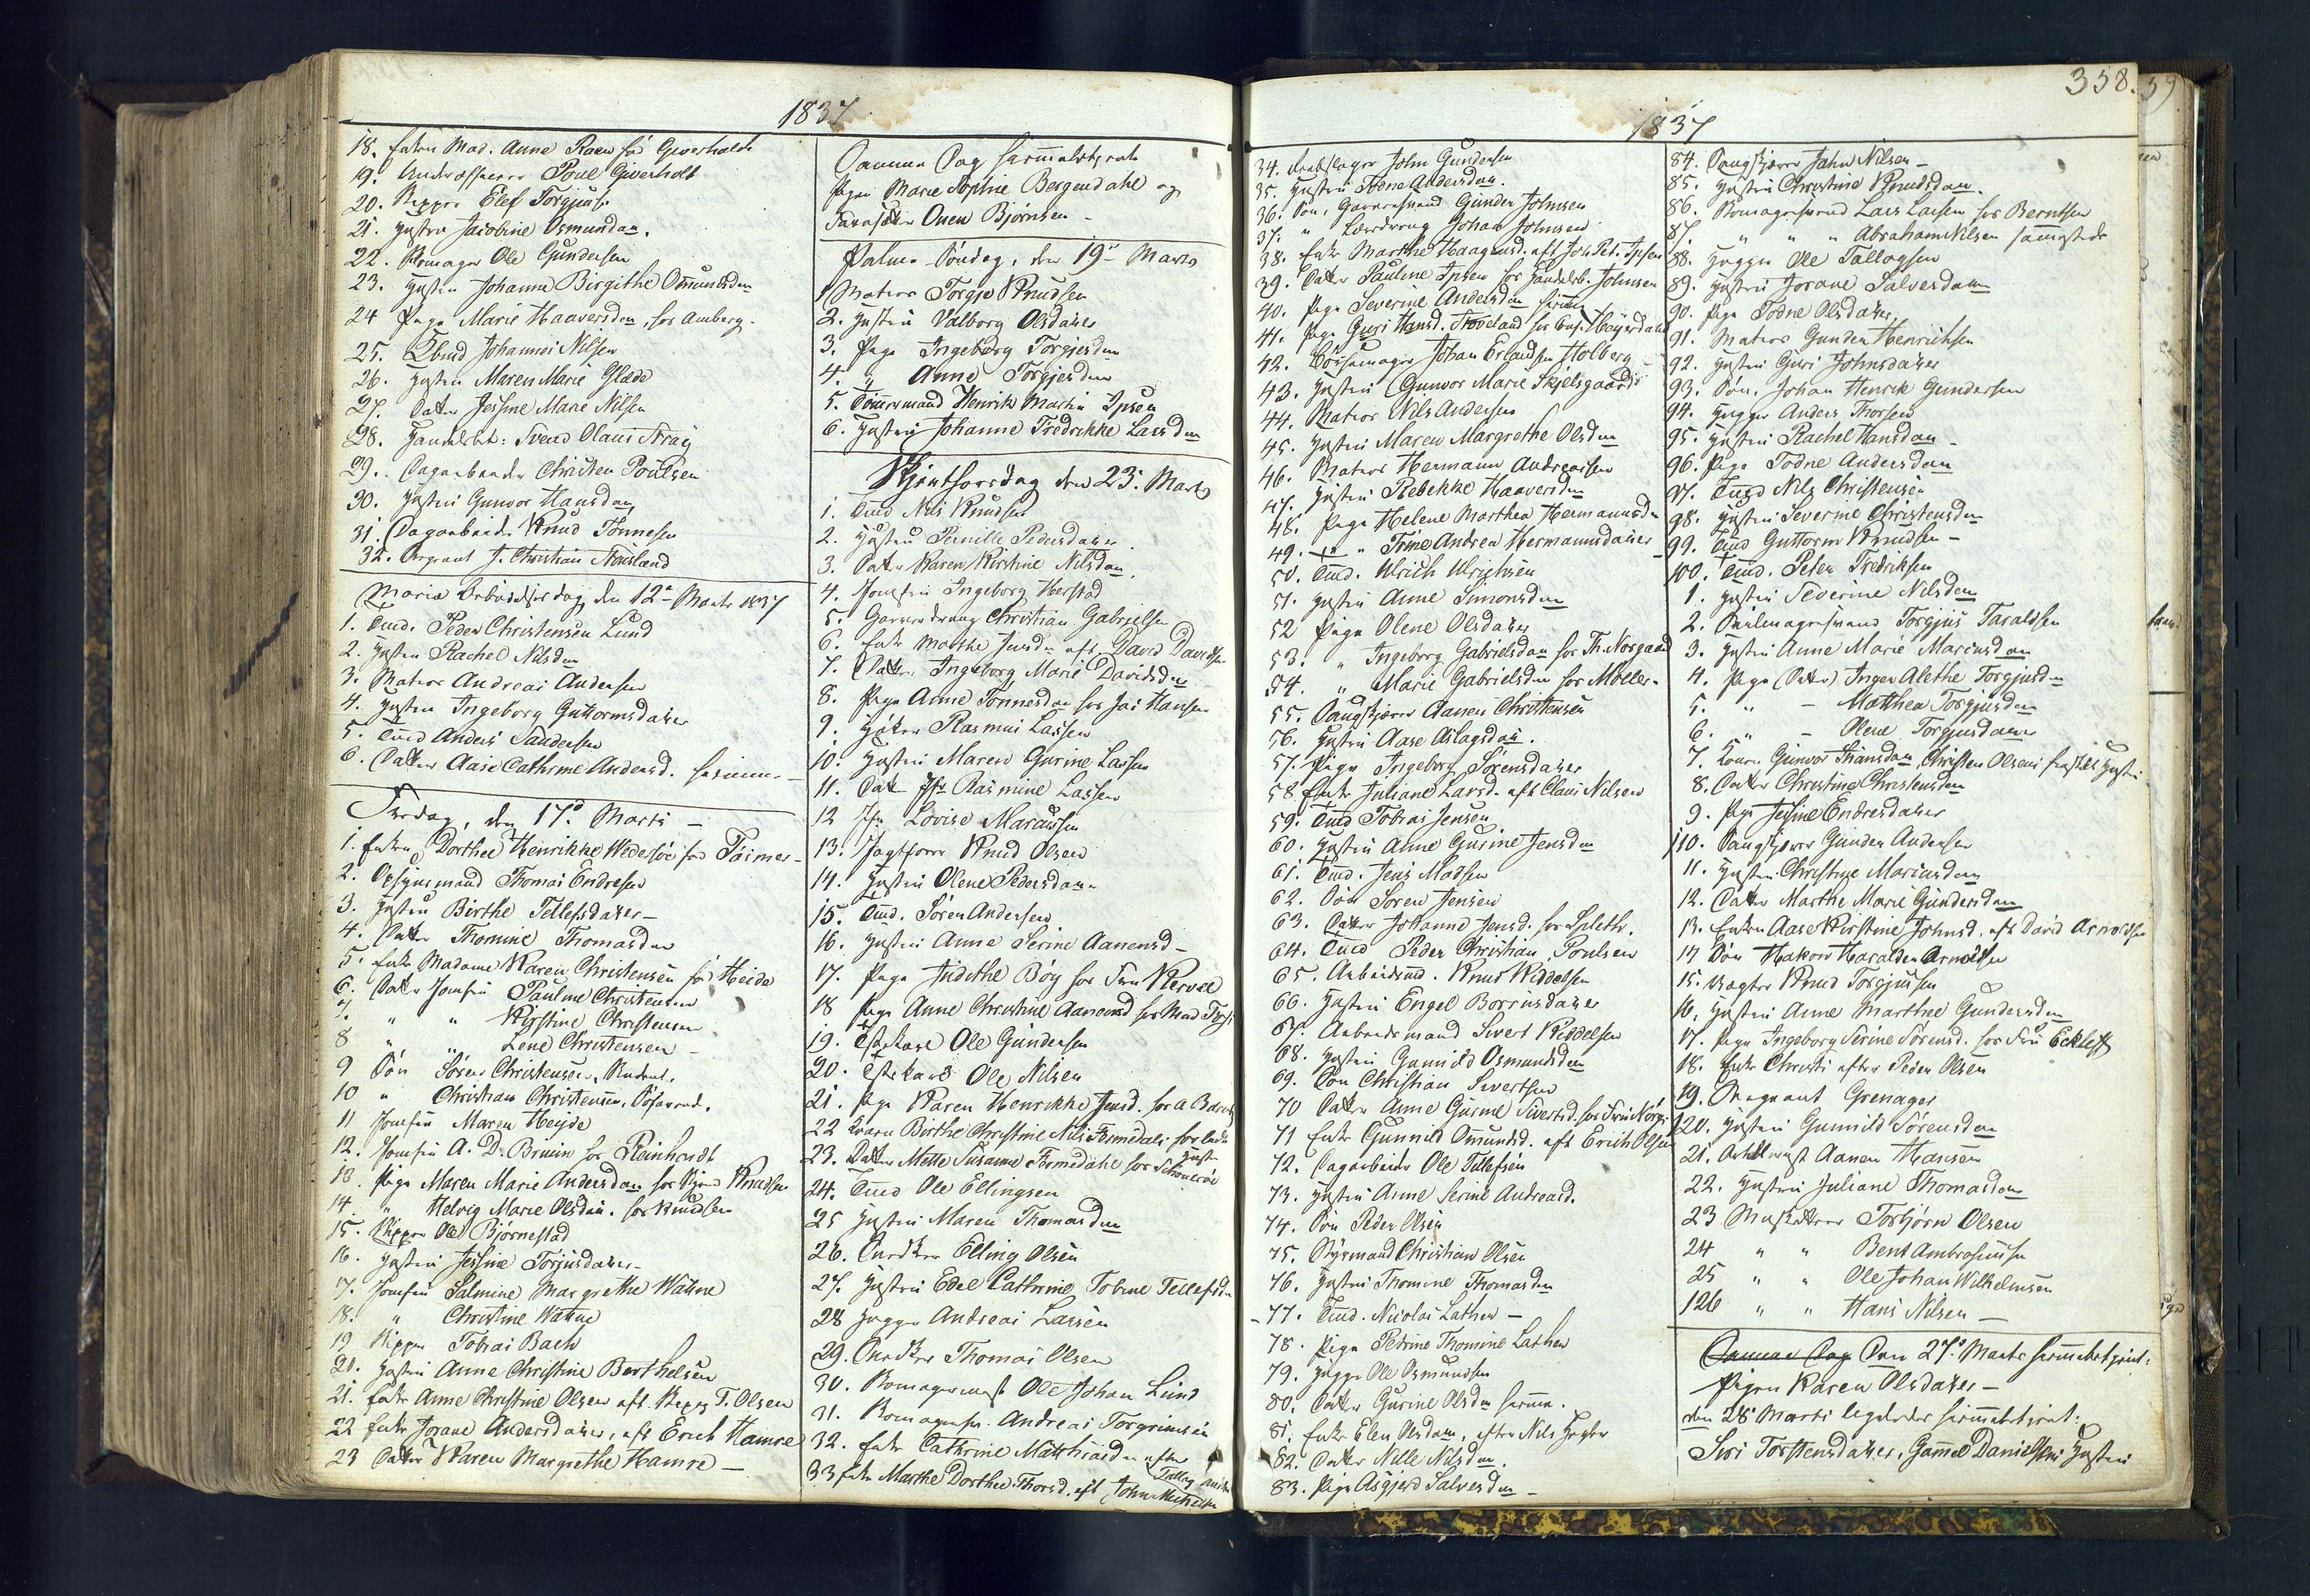 1837
18. Enken Mad. Anne Roen Giverholt
19. Underofficeer Poul Giverholt
20. Skipper Elef Torgius
21. Hustru Jacobine Osmundsdau.
22. Skomager Ole Gundersen
23. Hustru Johanne Birgithe Osmundsdau
24 Pige Marie Haaversdau, hos Amberg.
25. Johannes Nilsen
26. Hustru Maren Marie Glede
27. Datter Jessine Marie Nilsen
28. Handelsb: Svend Olaus Aray
29. Dagarbeider Christen Poulsen
30. Hustru Gunvor Hansdau
31. Dagarbeider Knud Tönnesen
32. Sergeant J. Christian
Mariæ Bebudelses dag den 12te Marts 1837
1. Tmd. Peder Christensen Lund
2. Hustru Rachel Nilsdau
3. Matros Andreas Andersen
4. Hustru Ingeborg Guttormsdatter
5. Tmd Anders Sandersen
6. Datter Aase Cathrine Andersd.
Fredag, den 17de Marts –
1. Enken Dorthea Henrikke
2. Opsynsmand Thomas Endresen
3. Hustru Birthe Tellefsdatter –
4. Datter Thomine Thomasdau
5. Enke Madame Karen Christensen fød Heide
6. Datter Jomfru Pauline Christensen
7. " " Kirstine Christensen
8 " " Lene Christensen –
9 Sön Sören Christensen, Student.
10 " Christian Christensen,
11 Jomfru Maren Heyde
12. Jomfru A. D. Bruun hos Reinhardt
13. Pige Maren Marie Andersdau hos Knudsen
14. " Helvig Marie Olsdau. hos Knudsen
15. Skipper Ole Bjørnestad
16. Hustru Jessine Torjusdatter –
17. Jomfru Salmine Margrethe Watne
18. " Christine Watne
19 Skipper Tobias Bach
20. Hustru Anne Christine Berthelsen
21. Enke Anne Christine Olsen eft. Skipp T. Olsen
22 Enke Jorane Andersdatter, eft Erich Hamre
23 Datter Karen Margrethe Hamre –
Samme Dag hjemmeberettet
Pigen Marie Sophie Bergendahl og
Ouen Bjørnsen –
Palme Söndag, den 19de Marts
1 Matros Torgje Knudsen
2. Hustru Valborg Olsdatter
3. Pige Ingeborg Torgjersdau
4. " Anne Torgjersdau
5. Tömmermand Henrik Martin Ipsen
6. Hustru Johanne Fredrikke Larsdau
Skjærthorsdag den 23de Marts
1. Tmd Nils Knudsen
2. Hustru Pernille Pedersdatter
3. Datter Karen Kirstine Nilsdau.
4. Jomfru Ingeborg Herstad
5. Garversvend Christian Gabrielsen
6. Enke Marthe Jensd. eft. David Davidsen
7. Datter Ingeborg Marie Davidsdau
8. Pige Anne Tönnesdau hos Jas Hansen
9. Höker Rasmus Lassen
10. Hustru Maren Gurine Lassen
11. Datt Jfr Rasmine Lassen
12 Jfr Lovise Marcussen
13. Jagtfører Knud Olsen
14. Hustru Olene Pedersdau
15. Tmd. Sören Andersen
16. Hustru Anne Serine Aanensd –
17. Pige Judithe Bøy hos Fru Kervel
18 Pige Anne Christine Aanensd hos Mad
19. Ole Gundersen
20. Ole Nilsen
21. Pige Karen Henrikke Jensd. hos A
22 Birthe Christine Nils Formedals
23. Datter Mette Susanne Formedahl hos
24. Tmd Ole Ellingsen
25 Hustru Maren Thomasdau
26. Snedker Elling Olsen
27. Hustru Edel Cathrine Tobine Tellefsd
28 Andreas Lassen
29. Snedker Thomas Olsen
30. Skomagermest Ole Johan Lund
31. Skomagersv. Andreas Torgrimsen
32. Enke Cathrine Matthiasd efter
33 Enke Marthe Dorthea Thorsd. eft
358.
59
1837
34. Rebslager John Gundersen
35. Hustru Todne Andersdau.
36. Sön, Garversvend Gunder Johnsen
37. " Læredreng Johan Johnsen
38. Enke Marthe Haagensd. eft Joh. Pet. Ipsen
39. Datter Pauline Ipsen hos Handelsb. Johnsen
40. Pige Severine Andersdau
41. Pige Guri Hansd.
42. Bössemager Johan Erlandsen Holberg
43. Hustru Gunvor Marie Skjelsgaard
44. Matros Nils Andersen
45. Hustru Maren Margrethe Olsdau
46. Matros Hermann Andreassen
47. Hustru Rebekke Haaversdau
48. Pige Helene Marthea Hermannsda
49. " Trine Andrea Hermannsdatter
50. Tmd. Ulrich Ulrichsen
51. Hustru Anne Simonsdau
52 Pige Olene Olsdatter
53. " Ingeborg Gabrielsdau hos Th. Norgaard
54. " Marie Gabrielsdau hos Möller.
55. Saugskjærer Aanen Christensen
56. Hustru Aase Aslagsdau.
57. Pige Ingeborg Sörensdatter
58 Enke Juliane Larsd. eft Claus Nilsen
59. Tmd Tobias Jensen
60. Hustru Anne Gurine Jensdau
61. Tmd. Jens Madsen
62. Sön Sören Jensen
63. Datter Johanne Jensd. hos
64. Tmd Peder Christian Poulsen
65. Arbeidsmd. Knud Kiddelsen
66. Hustru Engel Börresdatter
67. Arbeidsmand Sivert Kiddelsen
68. Hustru Gunnild Osmundsdau
69. Sön Christian Sivertsen
70 Datter Anne Gurine Sivertsd. hos Fru
71 Enke Gunnild Osmundsd. eft Erich Olsen
72. Dagarbeider Ole Tellefsen
73. Hustru Anne Serine Andreasd.
74. Sön Peder Olsen
75. Styrmand Christian Olsen
76. Hustru Thomine Thomasdau
77. Tmd. Nicolai Lathen –
78. Pige Petrine Thomine Lathen
79. Ole Osmundsen
80. Datter Gurine Olsdau
81. Enke Elen Olsdau, efter Nils
82. Datter Nille Nilsdau.
83. Pige Asgjerd Salvesdau –
84. Saugskjærer Jahn Nilsen –
85. Hustru Christine Knudsdau.
86. Skomagersvend Lars Larsen hos Berntsen
87. " " " Abraham Nilsen sammesteds
88. Ole Tallagsen
89. Hustru Jorane Salvesdau
90. Pige Todne Olsdatter
91. Matros Gunder Henrichsen
92. Hustru Guri Johnsdatter
93. Sön, Johan Henrik Gundersen
94. Anders Thorsen
95. Hustru Rachel Hansdau –
96. Pige Todne Andersdau
97. Tmd Nils Christensen
98. Hustru Severine Christensdau
99. Tmd Guttorm Knudsen –
100. Tmd. Peter Fredriksen
1. Hustru Severine Nilsdau
2. Seilmagersvend Torgjus Taraldsen
3. Hustru Anne Marie Mariusdau
4. Pige (Datter) Inger Alethe Torgjusdau
5. " – Matthea Torgjusdau
6. " – Olene Torgjusdatter
7. Kone Gunvor Christen Olsens fraskilt Hustru
8. Datter Christine Christensdau
9. Pige Jessine Endresdatter
110. Saugskjærer Gunder Andersen
11. Hustru Christine Mariusdau
12. Datter Marthe Marie Gundersdau
13. Enken Aase Kirstine Johnsd. eft David Arnoldsen
14 Sön Hakon Haralder Arnoldsen
15. Vægter Knud Torgjussen
16. Hustru Anne Marthea Gundersdau
17. Pige Ingeborg Serine Sörensd. hos Fru Eckleff
18. Enke Christi efter Peder Olsen
19. Sergeant Grenager
120. Hustru Gunnild Sörensdau
21. Aanen Hansen
22. Hustru Juliane Thomasdau
23 Musketeer Torbjörn Olsen
24 " " Bent Ambrosiussen
25 " " Ole Johan Wilhelmsen
126 " " Hans Nilsen –
Samme Dag Den 27de Marts hjemmeberettet:
Pigen Karen Olsdatter –
den 28 Marts ligeledes hjemmeberettet:
Siri Torstensdatter, Gammel Daniels Hustru